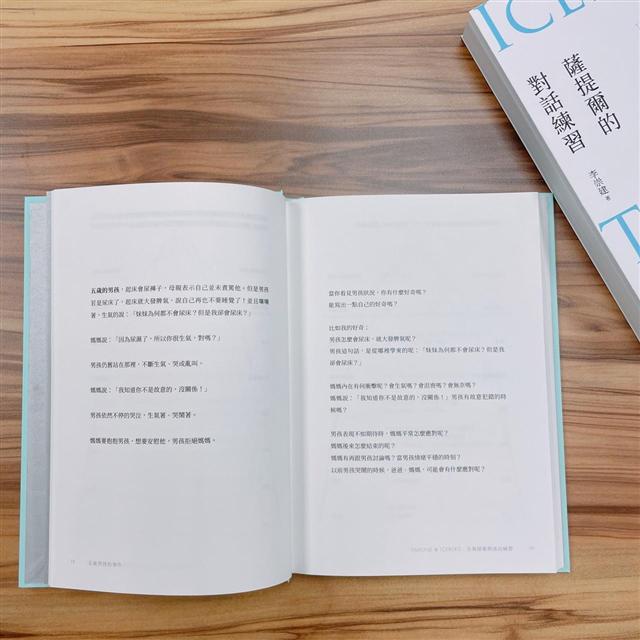 ICE
薩提爾的
對話練習
李崇建 著
T
五歲的男孩,起床會尿褲子,母親表示自己並未責罵他。但是男孩
若是尿床了,起床就大發脾氣,說自己再也不要睡覺了!並且嚷嚷
著、生氣的說:「妹妹為何都不會尿床?但是我卻會尿床?」
媽媽說:「因為尿濕了,所以你很生氣,對嗎?」
男孩仍舊站在那裡,不斷生氣、哭或亂叫。
媽媽說:「我知道你不是故意的,沒關係!」
男孩依然不停的哭泣,生氣著、哭鬧著。
媽媽要抱抱男孩,想要安慰他,男孩拒絕媽媽。
當你看見男孩狀況,你有什麼好奇嗎?
能寫出一點自己的好奇嗎?
比如我的好奇:
男孩怎麼會尿床,就大發脾氣呢?
男孩這句話,是從哪裡學來的呢:「妹妹為何都不會尿床?但是我
卻會尿床?」
媽媽內在有何衝擊呢?會生氣嗎?會沮喪嗎?會無奈嗎?
媽媽說:「我知道你不是故意的,沒關係!」男孩有故意犯錯的時
候嗎?
男孩表現不如期待時,媽媽平常怎麼應對呢?
媽媽後來怎麼結束的呢?
媽媽有再跟男孩討論嗎?當男孩情緒平穩的時刻?
以前男孩哭鬧的時候,爸爸、媽媽,可能會有什麼應對呢?